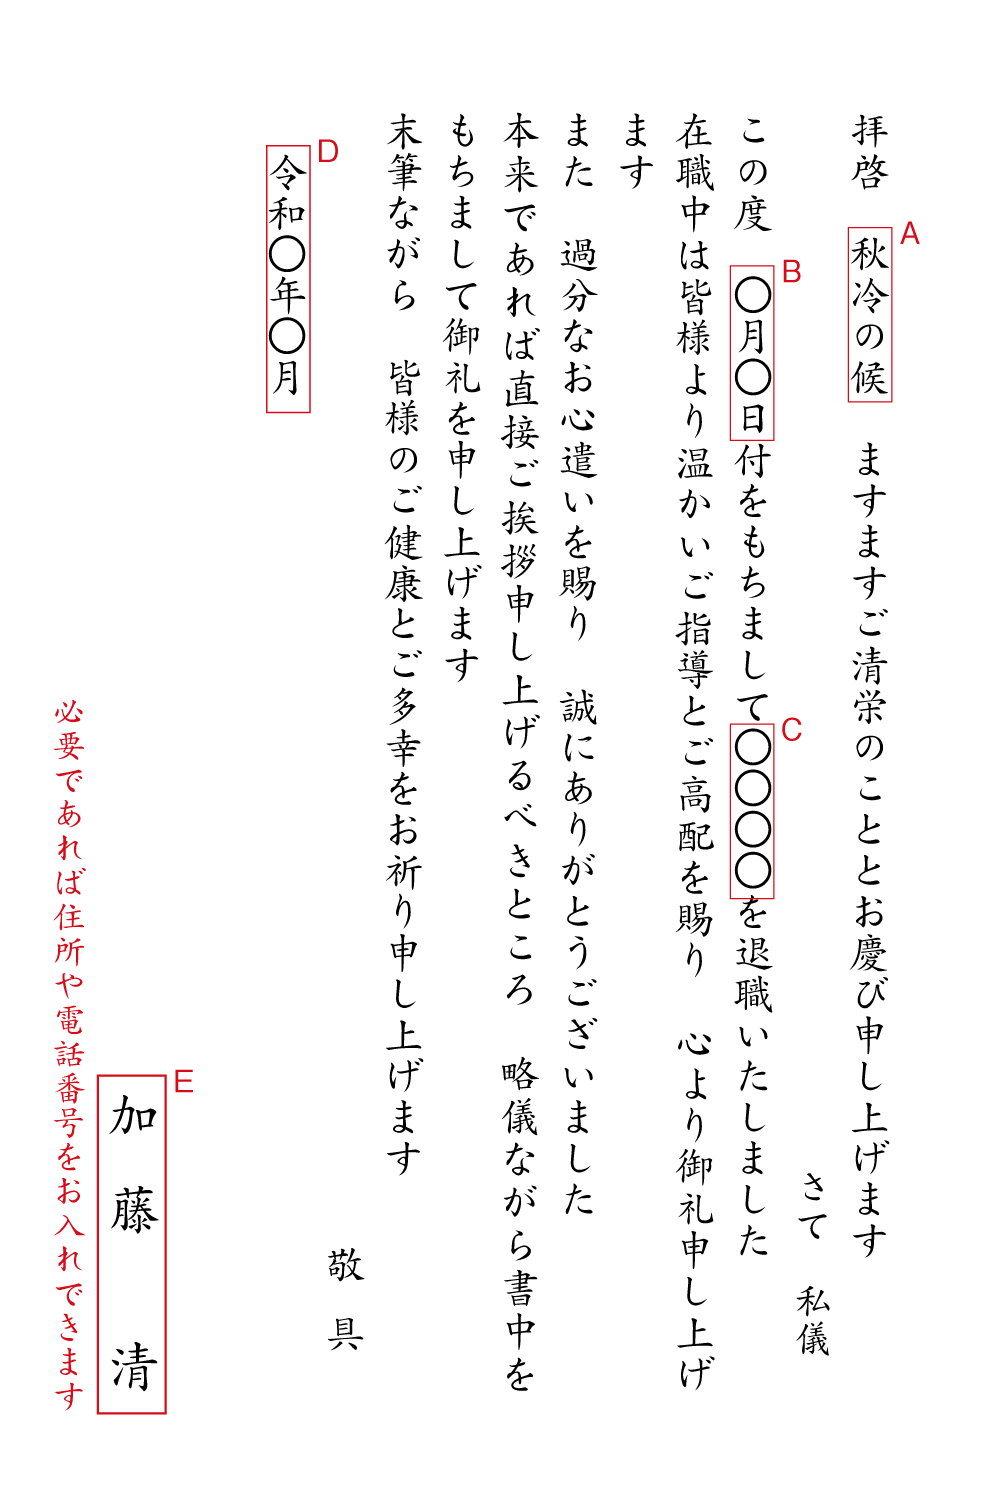 拝啓　秋冷の候　ますますご清栄のこととお慶び申し上げます
A
さて　私儀
この度　〇月〇日付をもちまして〇〇〇〇を退職いたしました
B
C
在職中は皆様より温かいご指導とご高配を賜り　心より御礼申し上げ
ます
また　過分なお心遣いを賜り　誠にありがとうございました
本来であれば直接ご挨拶申し上げるべきところ　略儀ながら書中を
もちまして御礼を申し上げます
末筆ながら　皆様のご健康とご多幸をお祈り申し上げます
敬具
令和〇年〇月
D
加藤　清
E
必要であれば住所や電話番号をお入れできます